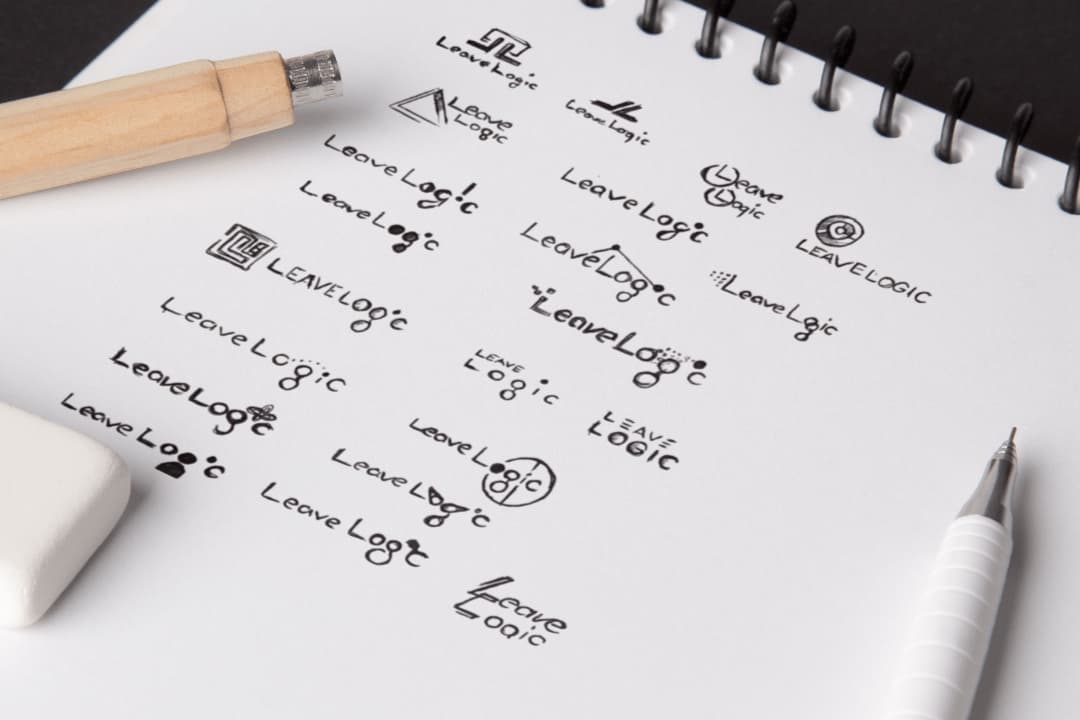 LeaveLogic
Leave
Logic
LeaveLogic
LeaveLog!c
LeaveLogic
Leave
Logic
LeaveLogic
LEAVELOGIC
LeaveLogic
LeaveLogic
LEAVELOgic
LeaveLogic
LeaveLogic
LEAVE
Logic
LeaveLogic
LEAVE
LOGIC
LeaveLogic
LeaveLogic
LeaveLogic
LeaveLogic
Leave
Logic